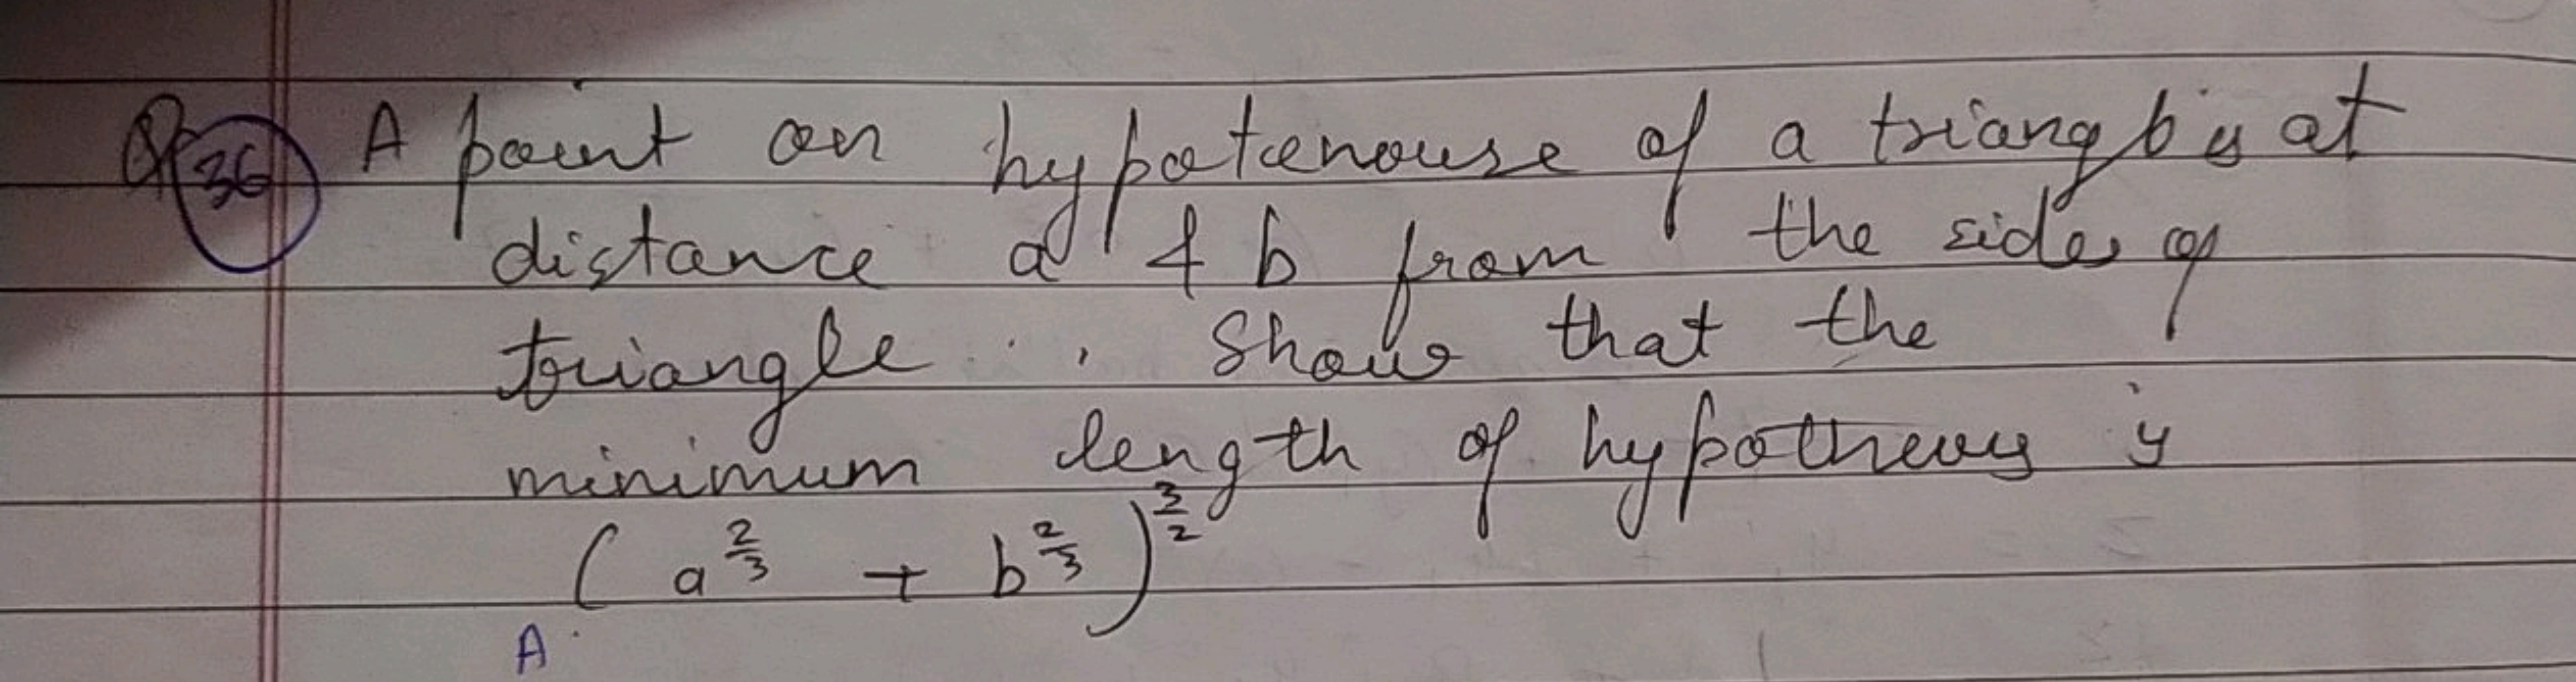 Q 36 A point on hypotenouse of a triangle is at
distance a & b from the sides of
triangle . Show that the
minimum length of hypothenus is
( a^{2/3} + b^{2/3} )^{3/2}
A